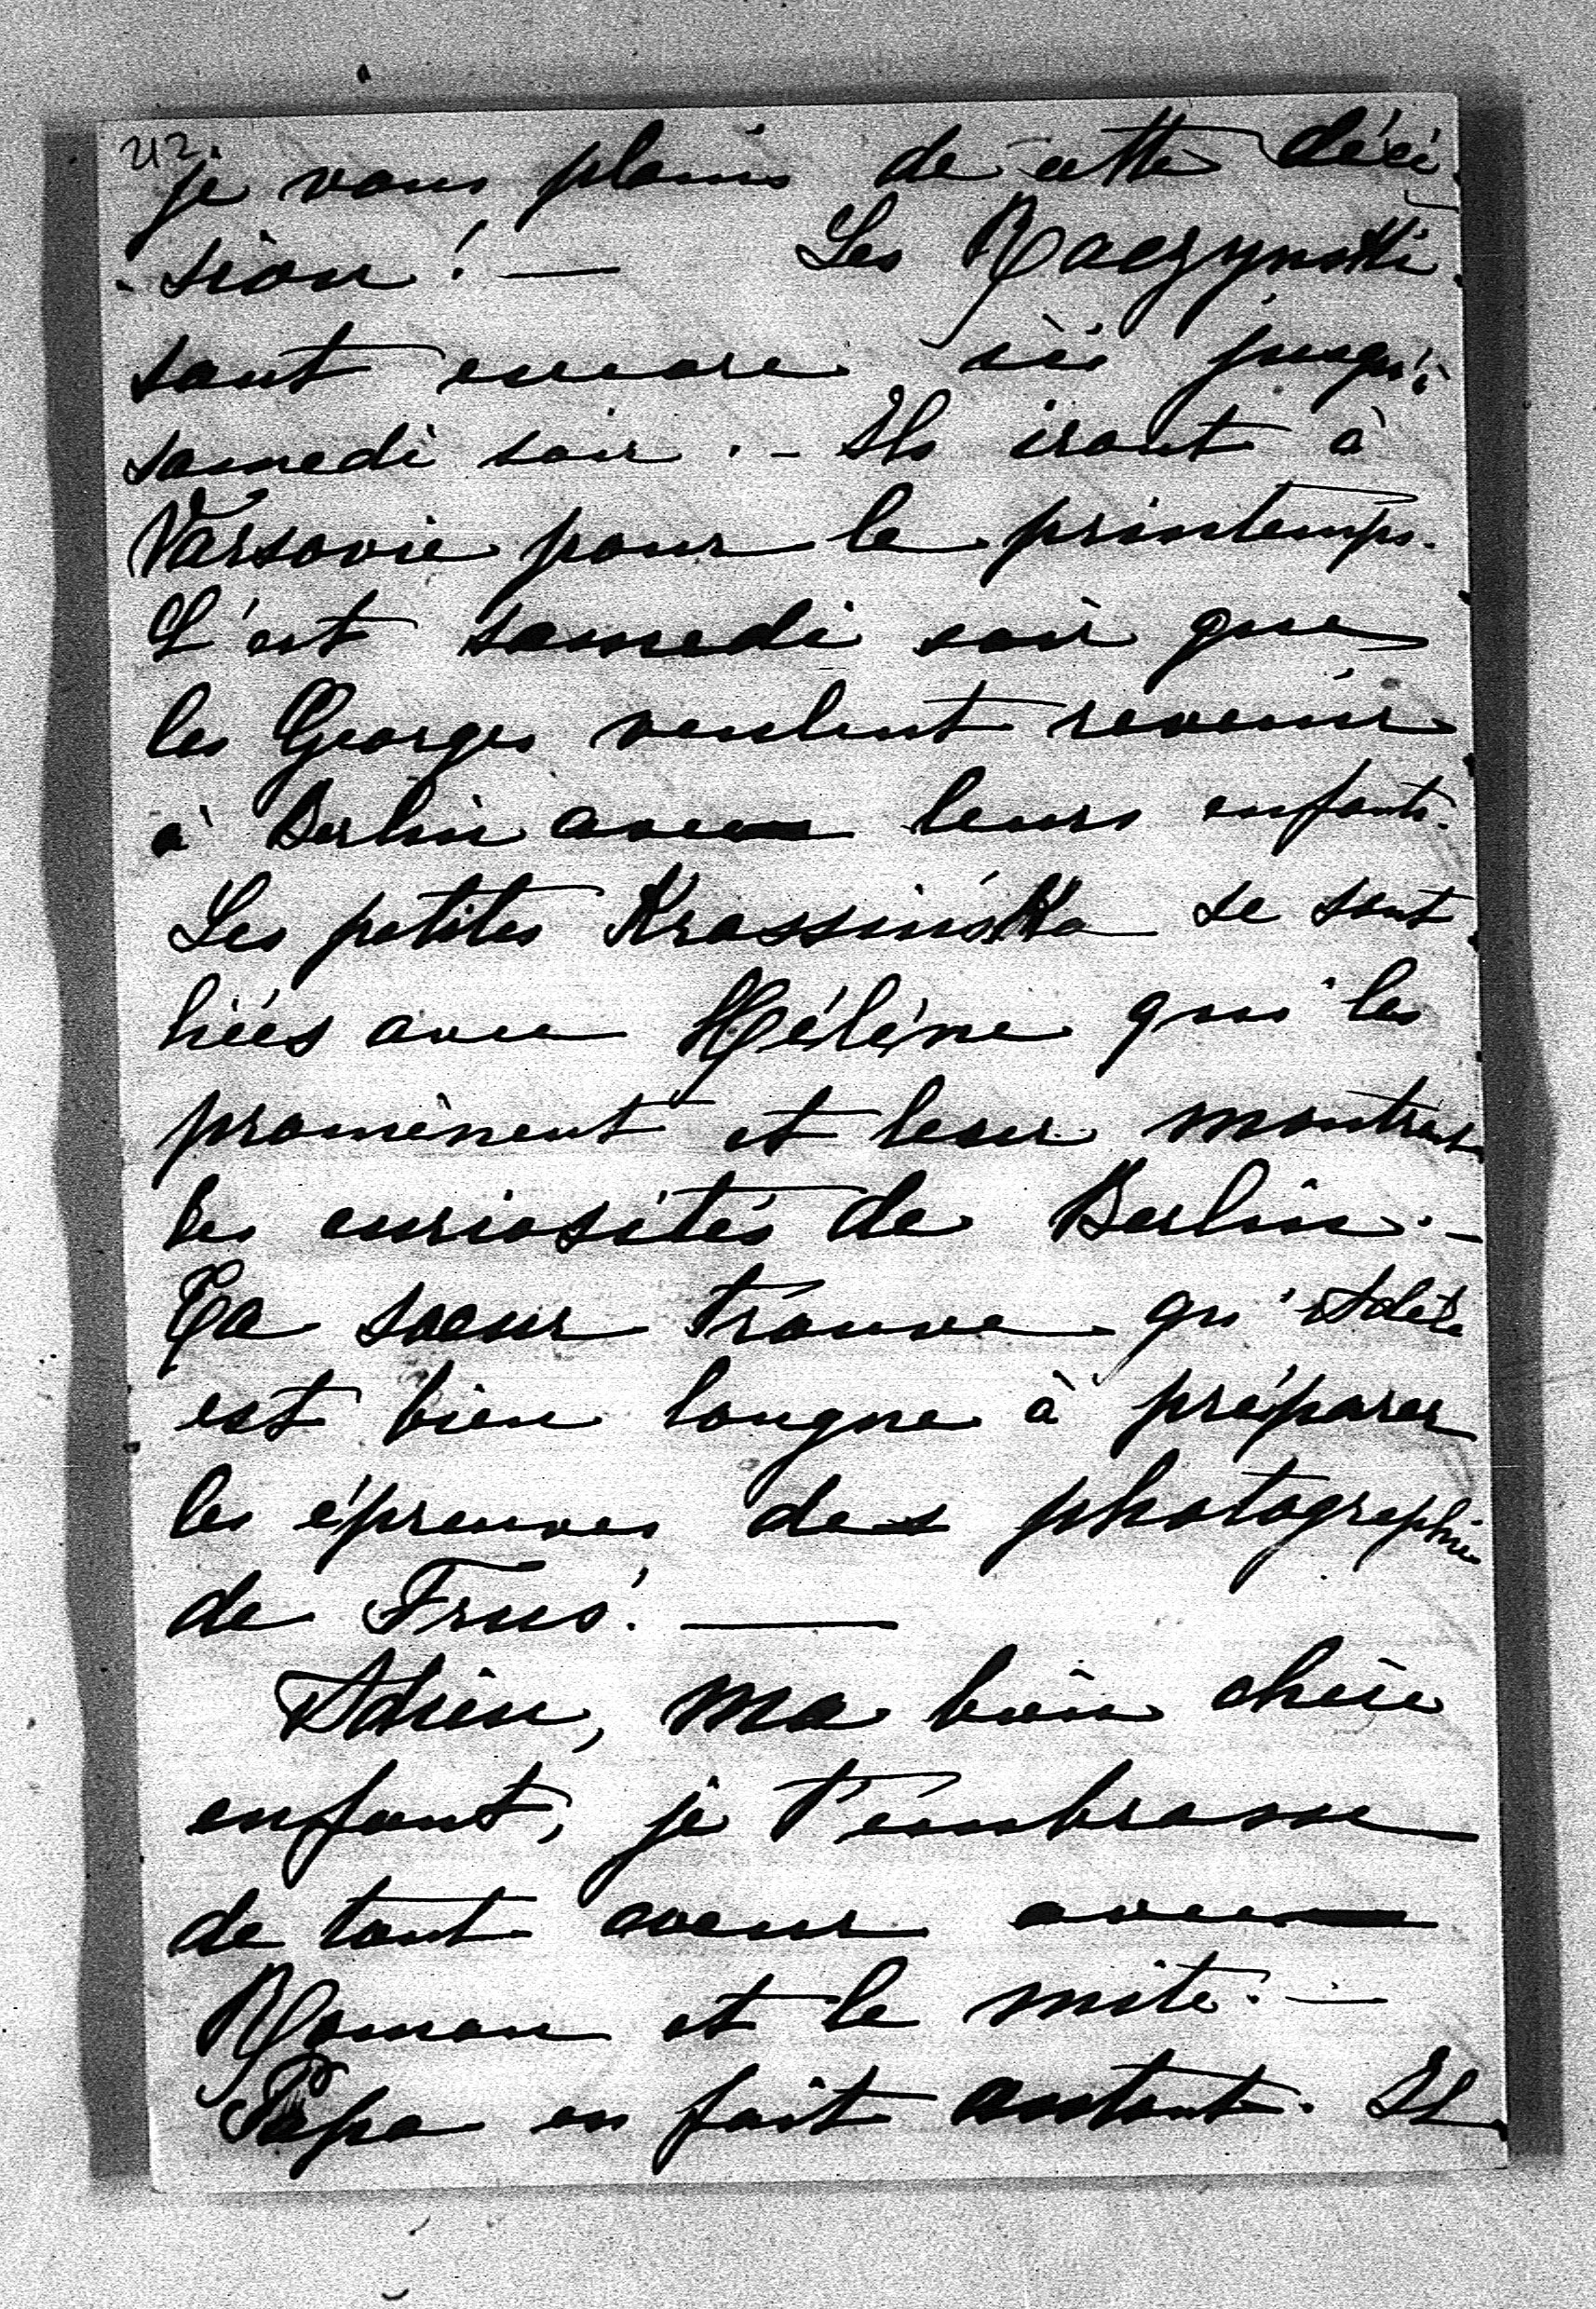 212.
je vous plains de cette déci
-sion ! — Les Raczynski
sont encore ici jusqu'à
samedi soir. - Ils iront à
Varsovie pour le printemps.
C'est samedi soir que
les Georges veulent revenir
à Berlin avec leurs enfants.
Les petites Krassińska se sont
liées avec Hélène qui les
promènent et leur montrent
les curiosités de Berlin. -
Ta soeur trouve qu'Adèle
est bien longue à préparer
les épreuves des photographies
de Fruś. —
Adieu, ma bien chère
enfant, je t'embrasse
de tout coeur avec
Roman et le mite. —
Papa en fait autant. Il